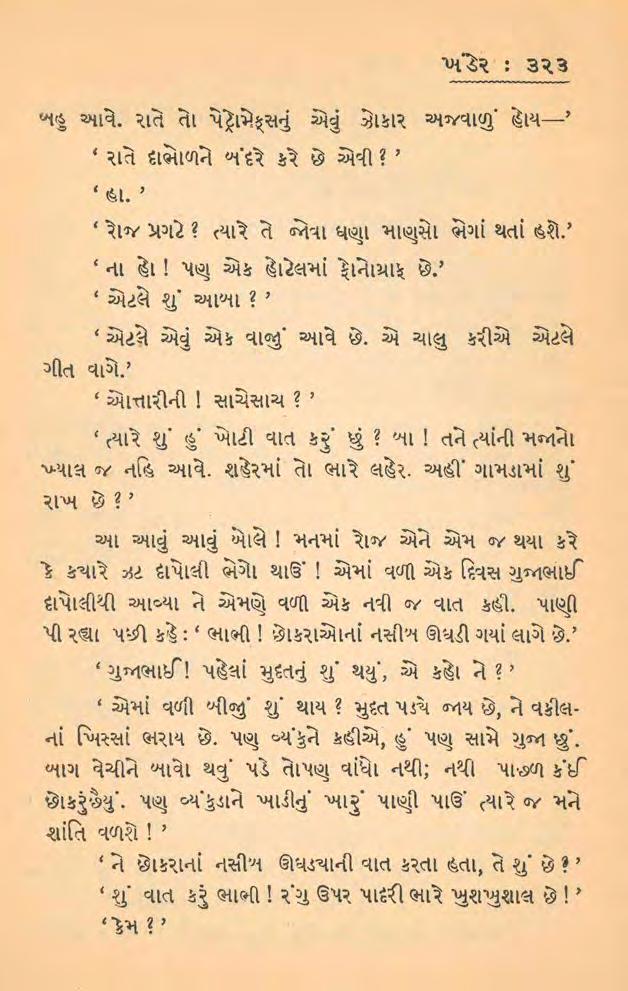 ખંડેર : ૩૨૩
બહુ આવે. રાતે તો પેટ્રોમેક્સનું એવું ઝોકાર અજવાળું હોય—’
‘ રાતે દાભોળને બંદરે કરે છે એવી ? ’
‘ હા. ’
‘ રોજ પ્રગટે ? ત્યારે તે જોવા ઘણા માણસો ભેગાં થતાં હશે.’
‘ ના હો ! પણ એક હોટેલમાં ફોનોગ્રાફ છે.’
‘ એટલે શું આબા ? ’
‘ એટલે એવું એક વાજું આવે છે. એ ચાલુ કરીએ એટલે
ગીત વાગે.’
‘ ઓત્તારીની ! સાચેસાચ ? ’
‘ ત્યારે શું હું ખોટી વાત કરું છું ? બા ! તને ત્યાંની મજાનો
ખ્યાલ જ નહિ આવે. શહેરમાં તો ભારે લહેર. અહીં ગામડામાં શું
રાખ છે ? ’
આ આવું આવું બોલે ! મનમાં રોજ એને એમ જ થયા કરે
કે ક્યારે ઝટ દાપોલી ભેગો થાઉં ! એમાં વળી એક દિવસ ગુજાભાઈ
દાપોલીથી આવ્યા ને એમણે વળી એક નવી જ વાત કહી. પાણી
પી રહ્યા પછી કહે : ‘ ભાભી ! છોકરાઓનાં નસીબ ઊઘડી ગયાં લાગે છે.’
‘ ગુજાભાઈ ! પહેલાં મુદતનું શું થયું, એ કહો ને ? ’
‘ એમાં વળી બીજું શું થાય ? મુદત પડ્યે જાય છે, ને વકીલ-
નાં ખિસ્સાં ભરાય છે. પણ વ્યંકુને કહીએ, હું પણ સામે ગુજા છું.
બાગ વેચીને બાવો થવું પડે તોપણ વાંધો નથી; નથી પાછળ કંઈ
છોકરુંછૈયું. પણ વ્યંકુડાને ખાડીનું ખારું પાણી પાઉં ત્યારે જ મને
શાંતિ વળશે ! ’
‘ ને છોકરાનાં નસીબ ઊઘડ્યાની વાત કરતા હતા, તે શું છે ? ’
‘ શું વાત કરું ભાભી ! રંગુ ઉપર પાદરી ભારે ખુશખુશાલ છે ! ’
‘ કેમ ? ’